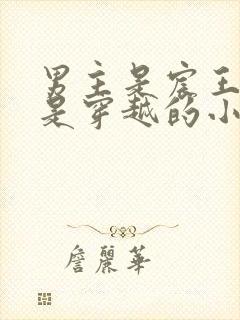 男主是宸王
是穿越的小
詹麗華